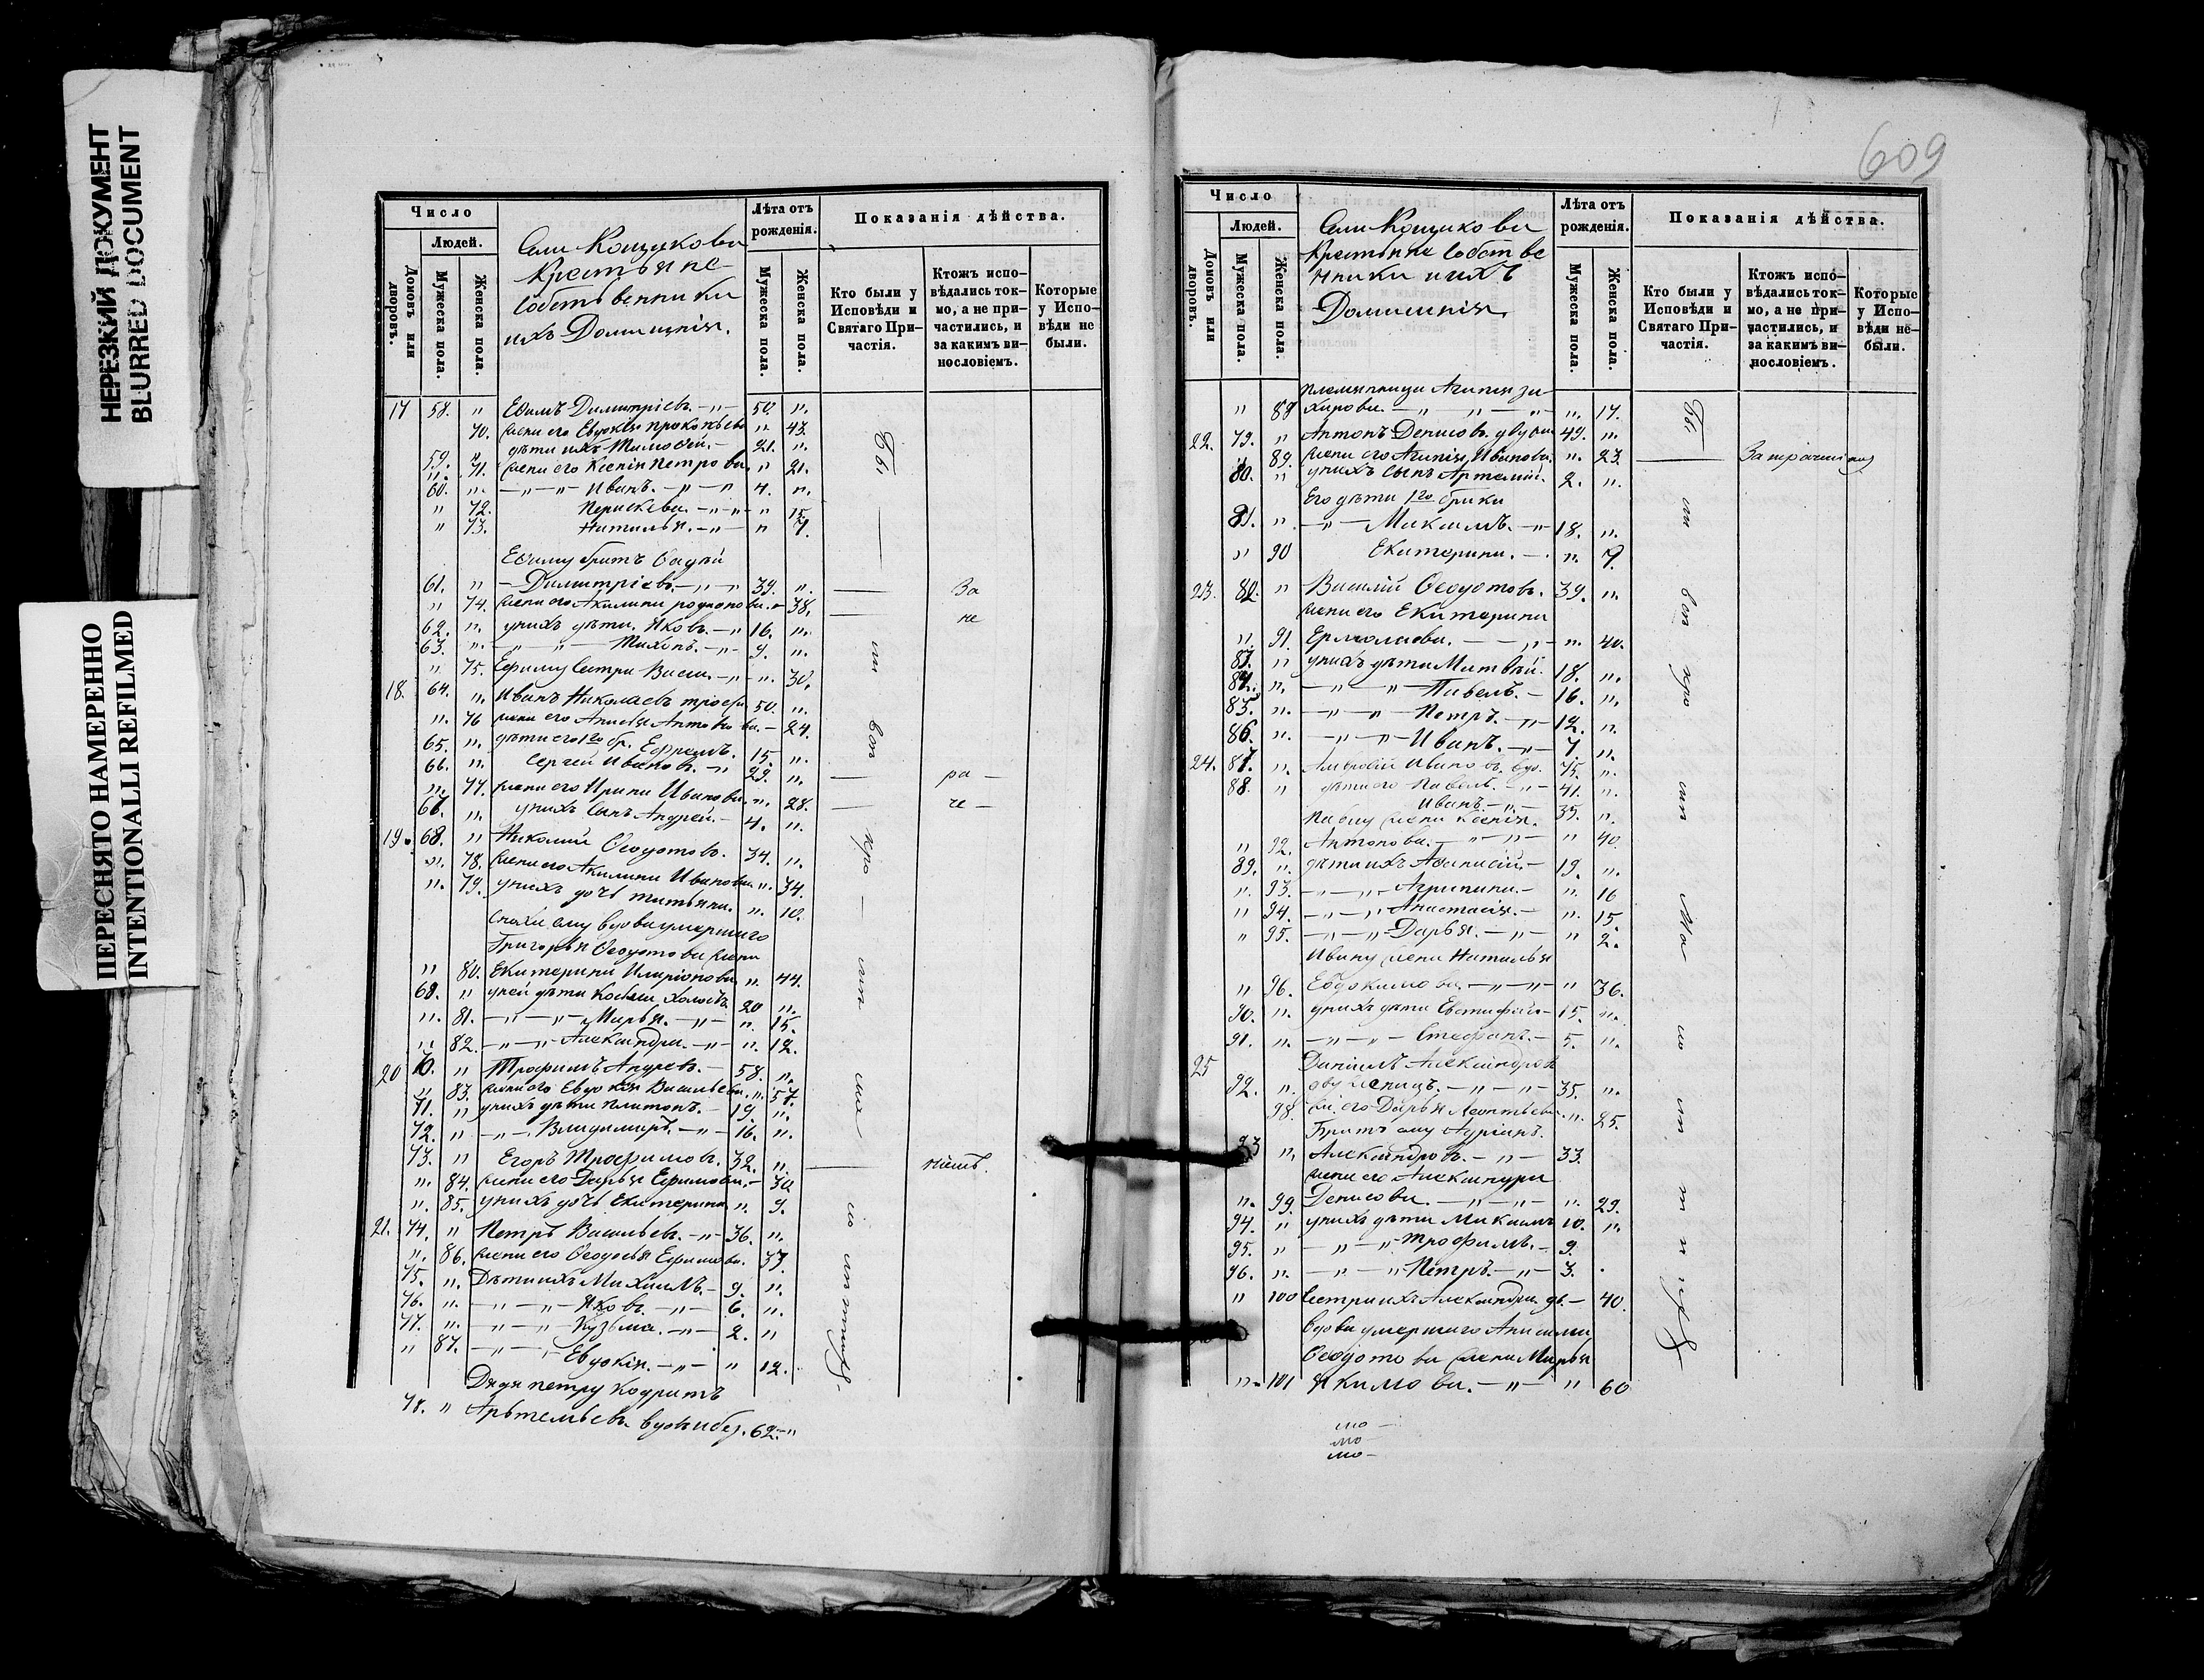 НЕРЕЗКИЙ ДОКУМЕНТ
BLURRED DOCUMENT
ПЕРЕСНЯТО НАМЕРЕННО
INTENTIONALLI REFILMED
Число
Людей.
Домовъ или дворовъ.
Мужеска пола.
Женска пола.
Крестьяне
собственники
ихъ Домашнія.
Лѣта отъ рожденія.
Мужеска пола.
Женска пола.
Показанія дѣйства.
Кто были у Исповѣди и Святаго Причастія.
Ктожъ исповѣдались токмо, а не причастились, и за какимъ винословіемъ.
Которые у Исповѣди не были.
17 58. " Ефимъ Димитріевъ. 50. "
70. жена его Евдокія Прокопьева " 43.
59. " дѣти ихъ Тимофей. 21. "
" 71. жена его Ксенія Петрова " 21.
60. " Иванъ. 4. "
" 72. Параскева. " 15.
" 73. Наталья. " 7.
Ефиму братъ Фадѣй
61. " Димитріевъ. 39. " За
" 74. жена его Акилина Родионова " 38. не
62. " у нихъ дѣти. Яковъ. 16. "
63. " Тихонъ. 9. "
" 75. Ефиму сестра Васса " 30.
18. 64. " Иванъ Николаевъ 50. "
" 76 жена его Анисья Антонова 24.
65. " дѣти его 1го бр. Ефремъ. 15. "
66. " Сергей Ивановъ. 29. " ра
" 77. жена его Ирина Иванова. " 28. че
67. " у нихъ сынъ Андрей. 4. "
19. 68. " Николай Феодотовъ. 34. "
" 78. жена его Акилина Иванова " 34.
" 79. у нихъ дочь Татьяна. " 10.
Сноха ему вдова умершаго
Григорья Феодотова жена
" 80. Екатерина Иларіонова " 44.
68. " у ней дѣти 20 "
" 81. Марья. " 15.
" 82. Александра. " 12.
20 70. " Трофимъ Андреевъ. 58. "
" 83. жена его Евдокія Васильева " 57.
71. " у нихъ дѣти Платонъ. 19. "
72. " Владимиръ. 16. "
73. " Егоръ Трофимовъ. 32. "
" 84. жена его Дарья Ефимова. 30
" 85. у нихъ дочь Екатерина " 9.
21. 74. " Петръ Васильевъ. 36. "
" 86. жена его Феодосья Ефимова. 37.
75. " Дѣти ихъ Михаилъ. 9. "
76. " Яковъ. 6. "
77. " Кузьма. 2. "
" 87. Евдокія. " 12.
Дядя Петру Кодратъ
78. " Артемьевъ 62. "
609
Число
Людей.
Домовъ или дворовъ.
Мужеска пола.
Женска пола.
Крестьяне собстве
нники и ихъ
Домашнія
Лѣта отъ рожденія.
Мужеска пола.
Женска пола.
Показанія дѣйства.
Кто были у Исповѣди и Святаго Причастія.
Ктожъ исповѣдались токмо, а не причастились, и за какимъ винословіемъ.
Которые у Исповѣди не были.
племянница Агапія За
" 88 харова. " 17.
22. 79. " Антонъ Денисовъ 49. "
" 89. жена его Агапія Иванова. " 23.
80. " у нихъ сынъ Артемій. 2. "
Его дѣти 1го брака
81. " Максимъ. 18. "
" 90 Екатерина. " 9
23. 82. " Василій Феодотовъ. 39. "
жена его Екатерина
" 91. Ермолаева. " 40.
83. " у нихъ дѣти Матвѣй. 18. "
84. " Павелъ. 16. "
85. " Петръ. 12. "
86. " Иванъ. 7. "
24. 87. " Ивановъ вдо. 75. "
88. " дѣти его Павелъ. 41. "
Иванъ. 35. "
Павлу жена Ксенія.
" 92. Антонова. " 40
89. " дѣти ихъ Афанасій. 19. "
" 93. Агрипина. " 16
" 94. Анастасія. " 15.
" 95. Дарья. " 2.
Ивану жена Наталья
" 96. Евдокимова. " 36.
90. " у нихъ дѣти 15. "
91. " Стефанъ. 5. "
25 Даніилъ Александровъ
92. " 35. "
98. ж. его Дарья Леонтьева " 25.
Братъ ему
93 " Александровъ. 33.
жена его
" 99. Денисова. " 29.
94. " у нихъ дѣти Максимъ 10. "
95. " Трофимъ. 9.
96. " Петръ. 3.
" 100 Сестра ихъ Александра дѣ. 40.
Вдова умершаго
Феодотова жена Марья
" 101 Якимова. " 60